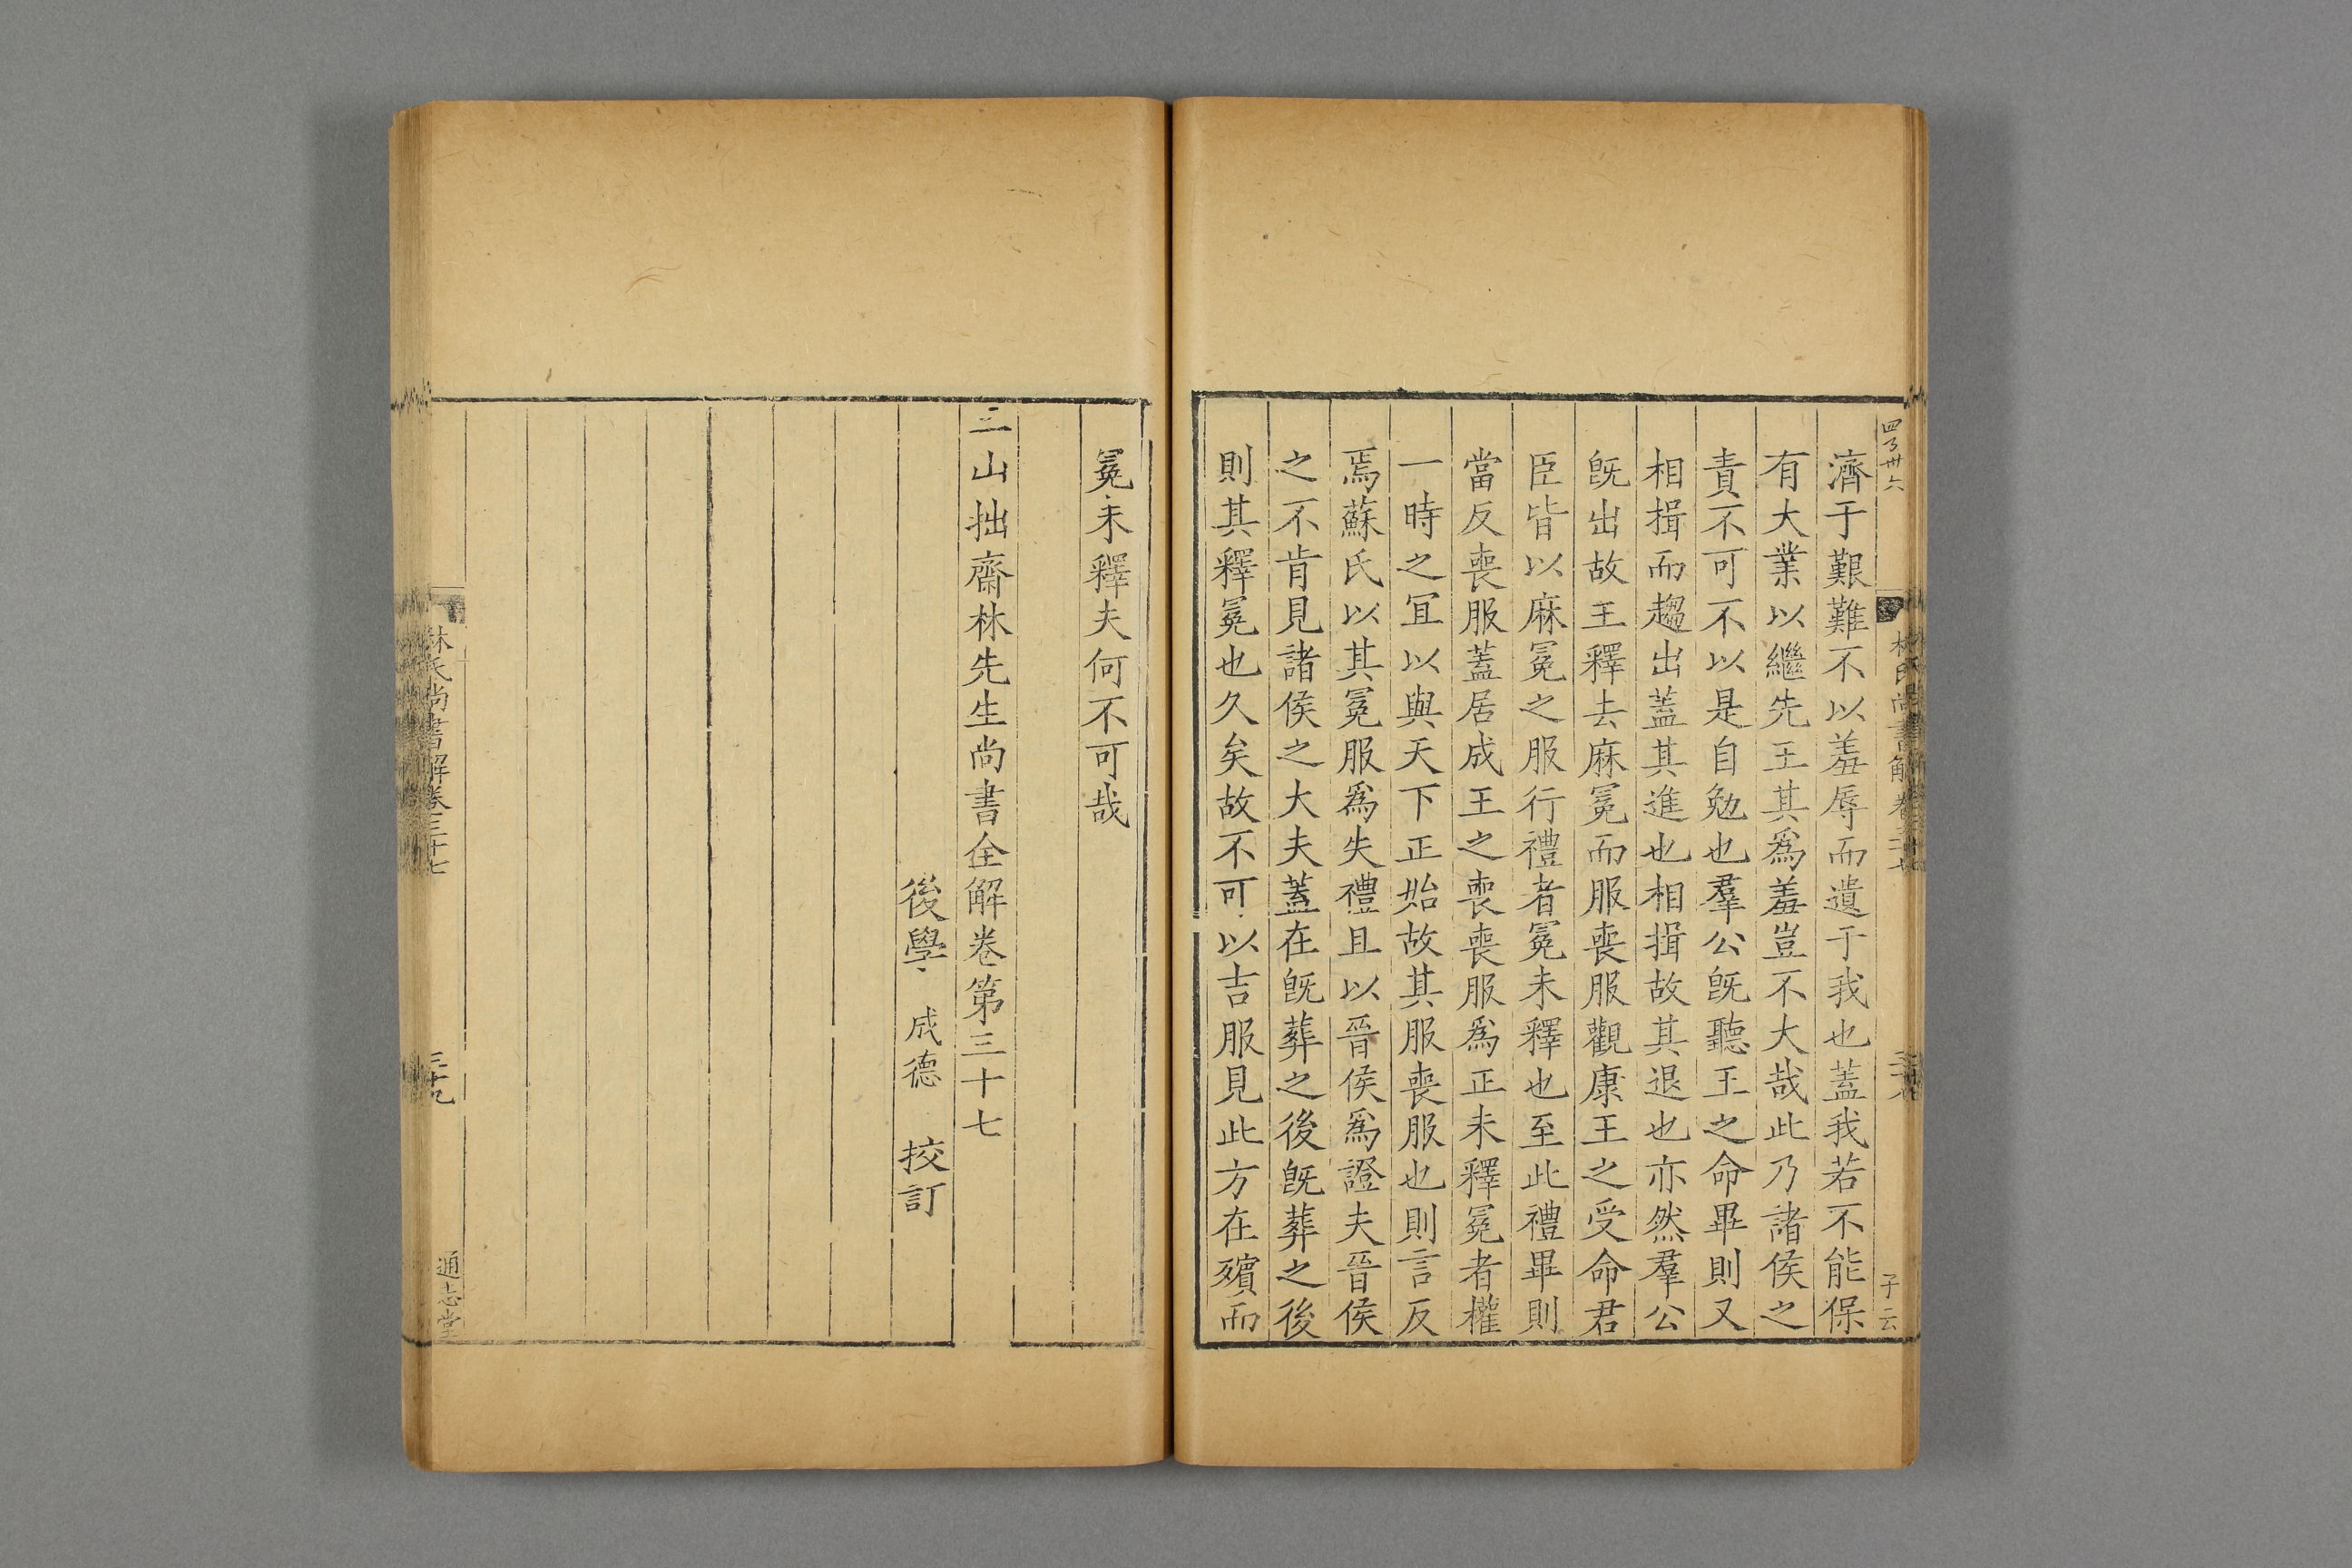 濟于艱難不以羞辱而遺于我也蓋我若不能保
有大業以繼先王其爲羞豈不大哉此乃諸侯之
責不可不以是自勉也羣公旣聽王之命畢則又
相揖而趨出蓋其進也相揖故其退也亦然羣公
旣出故王釋去麻冕而服喪服觀康王之受命君
臣皆以麻冕之服行禮者冕未釋也至此禮畢則
當反喪服蓋居成王之喪喪服爲正未釋冕者權
一時之冝以與天下正始故其服喪服也則言反
焉蘇氏以其冕服爲失禮且以晉侯爲證夫晉侯
之不肯見諸侯之大夫蓋在旣葬之後旣葬之後
則其釋冕也久矣故不可以吉服見此方在殯而
子云
冕未釋夫何不可哉
三山拙齋林先生尚書全解卷第三十七
後學 成德 挍訂
林氏尚書解卷三十七
三十九
通志堂